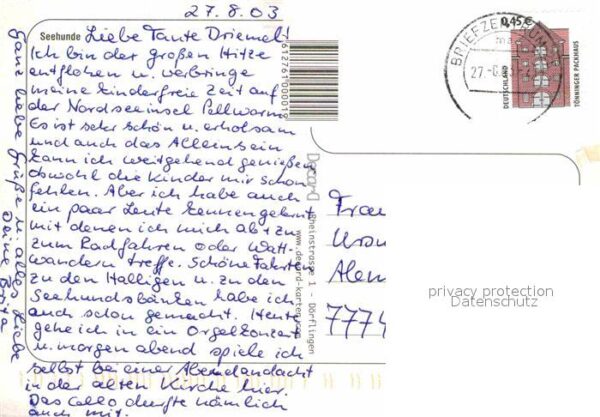 27.8.03
Seehunde
Liebe Tante Driemel!
Ich bin der großen Hitze
entflohen u. verbringe
meine kinderfreie Zeit auf
der Nordseeinsel Pellworm.
Es ist sehr schön u. erholsam
und auch das Alleinsein
kann ich weitgehend genießen
obwohl die Kinder mir schon
fehlen. Aber ich habe auch
ein paar Leute kennengelernt
mit denen ich mich ab + zu
zum Radfahren oder Watt-
wandern treffe. Schöne Fahrten
zu den Halligen u. zu den
Seehundsbänken habe ich
auch schon gemacht. Heute
gehe ich in ein Orgelkonzert
u. morgen abend spiele ich
selbst bei einer Abendandacht
in der alten Kirche hier.
Das Cello durfte nämlich
auch mit.
Ganz liebe Grüße u. alles Liebe
Deine Brita
612761000019
Rheinstrasse 1 - Dörflingen
www.decard-karten
BRIEFZENTRUM
27.-8.
0,45€
DEUTSCHLAND
TÖNNINGER PACKHAUS
Frau
7774
privacy protection
Datenschutz